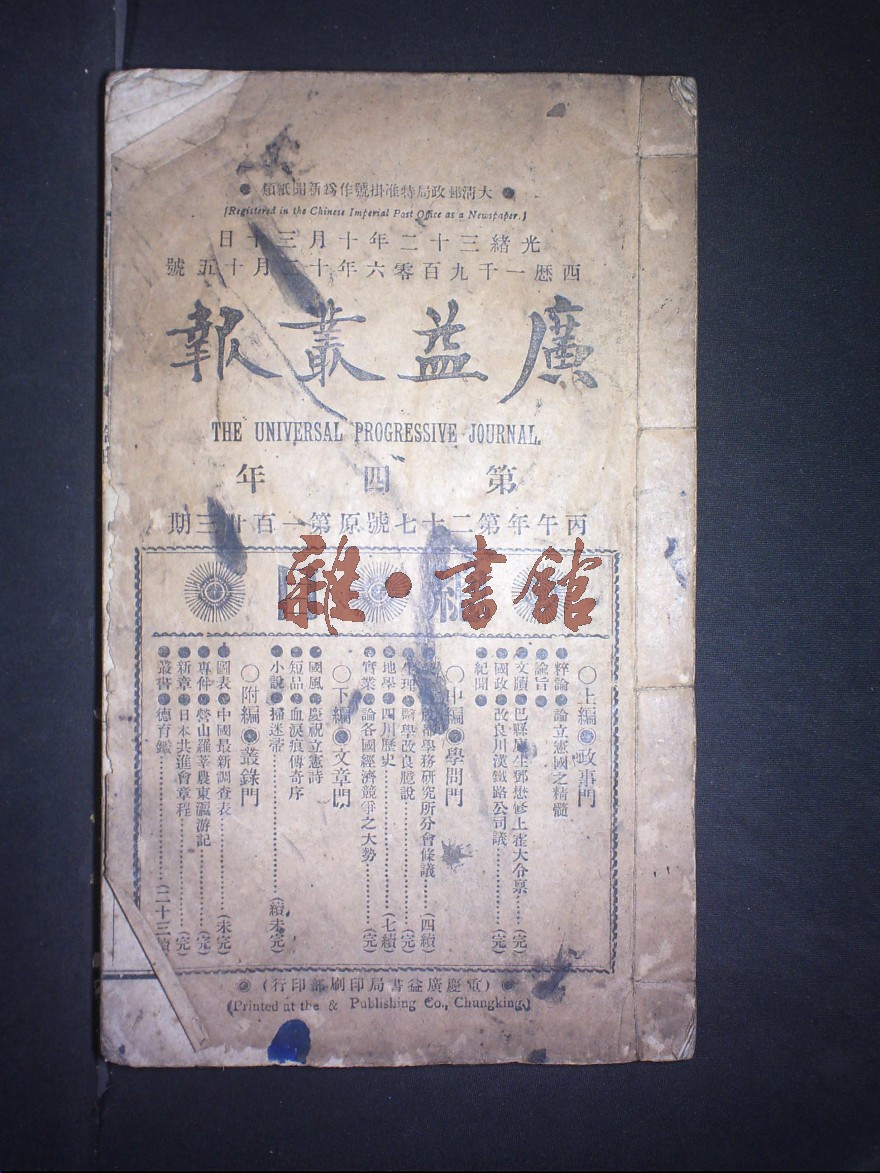 ●大清郵政局特准掛號作爲新聞紙類●
[Registered in the Chinese Imperial Post Office as a Newspaper.]
光緒三十二年十月三十日
西歷一千九百零六年十二月十五號
廣益叢報
THE UNIVERSAL PROGRESSIVE JOURNAL.
第四年
丙午年第二十七號原第一百廿三期
雜·書館
○上編●政事門
●粹論●論立憲國之精髓
●諭旨●
●文牘●巴縣 生鄧懋修上霍大令稟……(完)
●國政●改良川漢鐵路公司議……(完)
●紀聞●
○中編●學問門
學務研究所分會條議……(四續)
●生理●醫學改良臆說……(完)
●地學●四川歷史……(七續)
●實業●論各國經濟競爭之大勢……(完)
○下編●文章門
●國風●慶祝立憲詩
●短品●血淚痕傳奇序
●小說●掃迷帚……(續未完)
○附編●叢錄門
●圖表●中國最新調查表……(未完)
●專件●營山羅莘農東瀛游記……(完)
●新章●日本共進會章程……(完)
●叢書●德育鑑……(二十三續
●(重慶廣益書局印刷部印行)●
(Printed at the & Publishing Co., Chungking.)